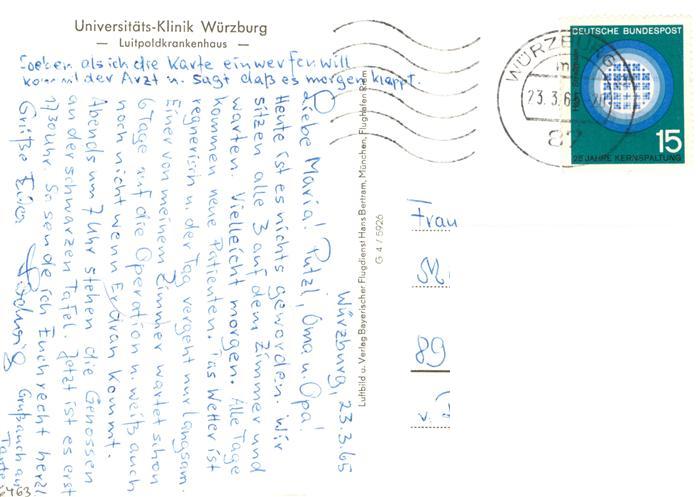 Universitäts-Klinik Würzburg
— Luitpoldkrankenhaus —
Soeben als ich die Karte einwerfen will
kommt der Arzt u. sagt daß es morgen klappt.
Würzburg, 23.3.65
Liebe Maria! Putzl, Oma u. Opa!
Heute ist es nichts geworden. Wir
sitzen alle 3 auf dem Zimmer und
warten. Vielleicht morgen. Alle Tage
kommen neue Patienten. Das Wetter ist
regnerisch u. der Tag vergeht nur langsam.
Einer von meinem Zimmer wartet schon
6 Tage auf die Operation u. weiß auch
noch nicht wenn Er dran kommt.
Abends um 7 Uhr stehen die Genossen
an der schwarzen Tafel. Jetzt ist es erst
1730 Uhr. So sende ich Euch recht herzl
Grüße Euer
Gruß auch an
Tante
6463
Luftbild u. Verlag Bayerischer Flugdienst Hans Bertram, München, Flughafen Riem
G 4 / 5926
WÜRZBURG
23.3.65
87
DEUTSCHE BUNDESPOST
15
25 JAHRE KERNSPALTUNG
Frau
M
89
v.